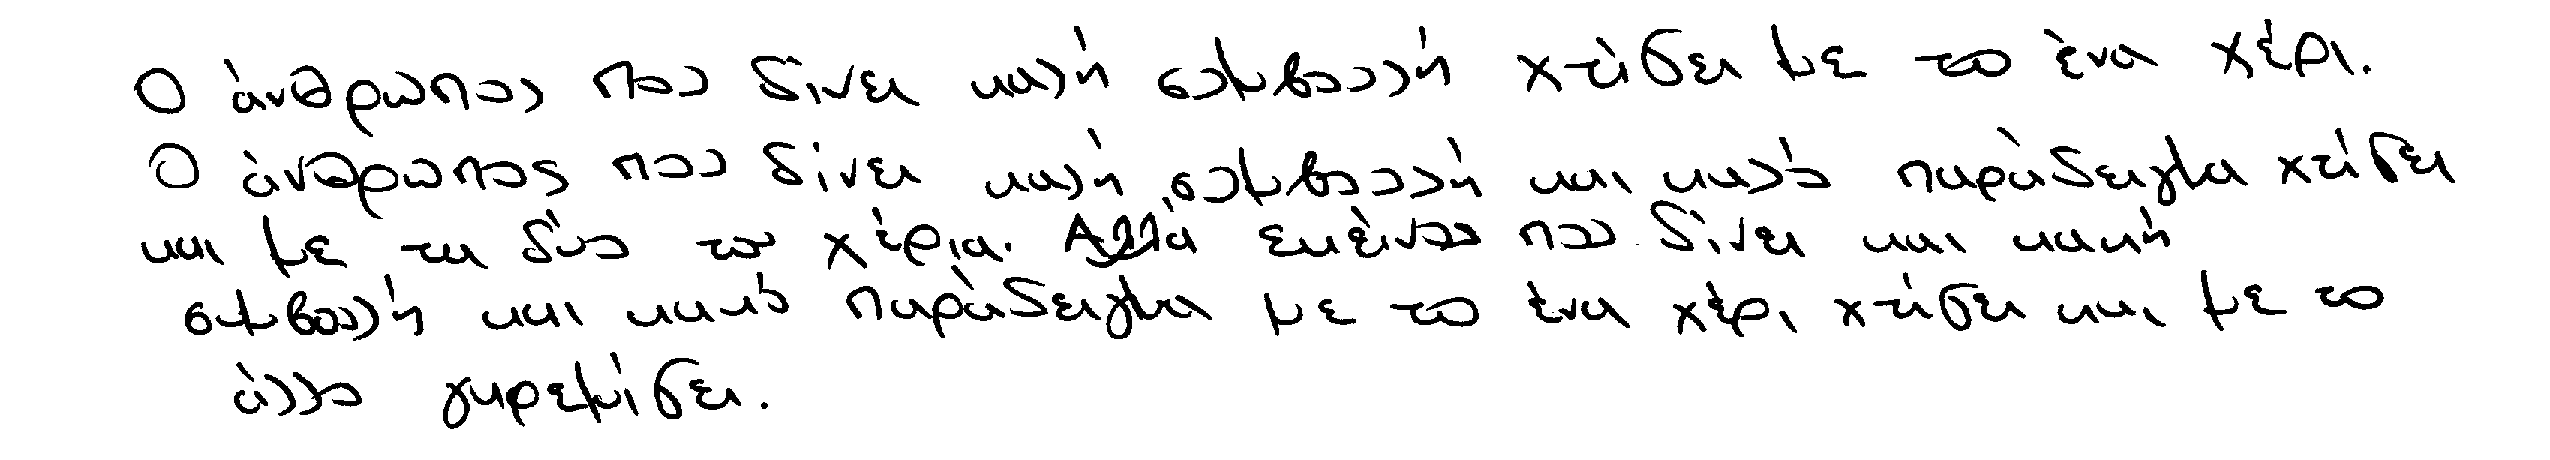 Ο άνθρωπος που δίνει καλή συμβουλή χτίζει με το ένα χέρι.
Ο άνθρωπος που δίνει καλή συμβουλή και καλό παράδειγμα χτίζει
και με τα δύο του χέρια. Αλλά εκείνου που δίνει και κακή
συμβουλή και κακό παράδειγμα με το ένα χέρι χτίζει και με το
άλλο γκρεμίζει.